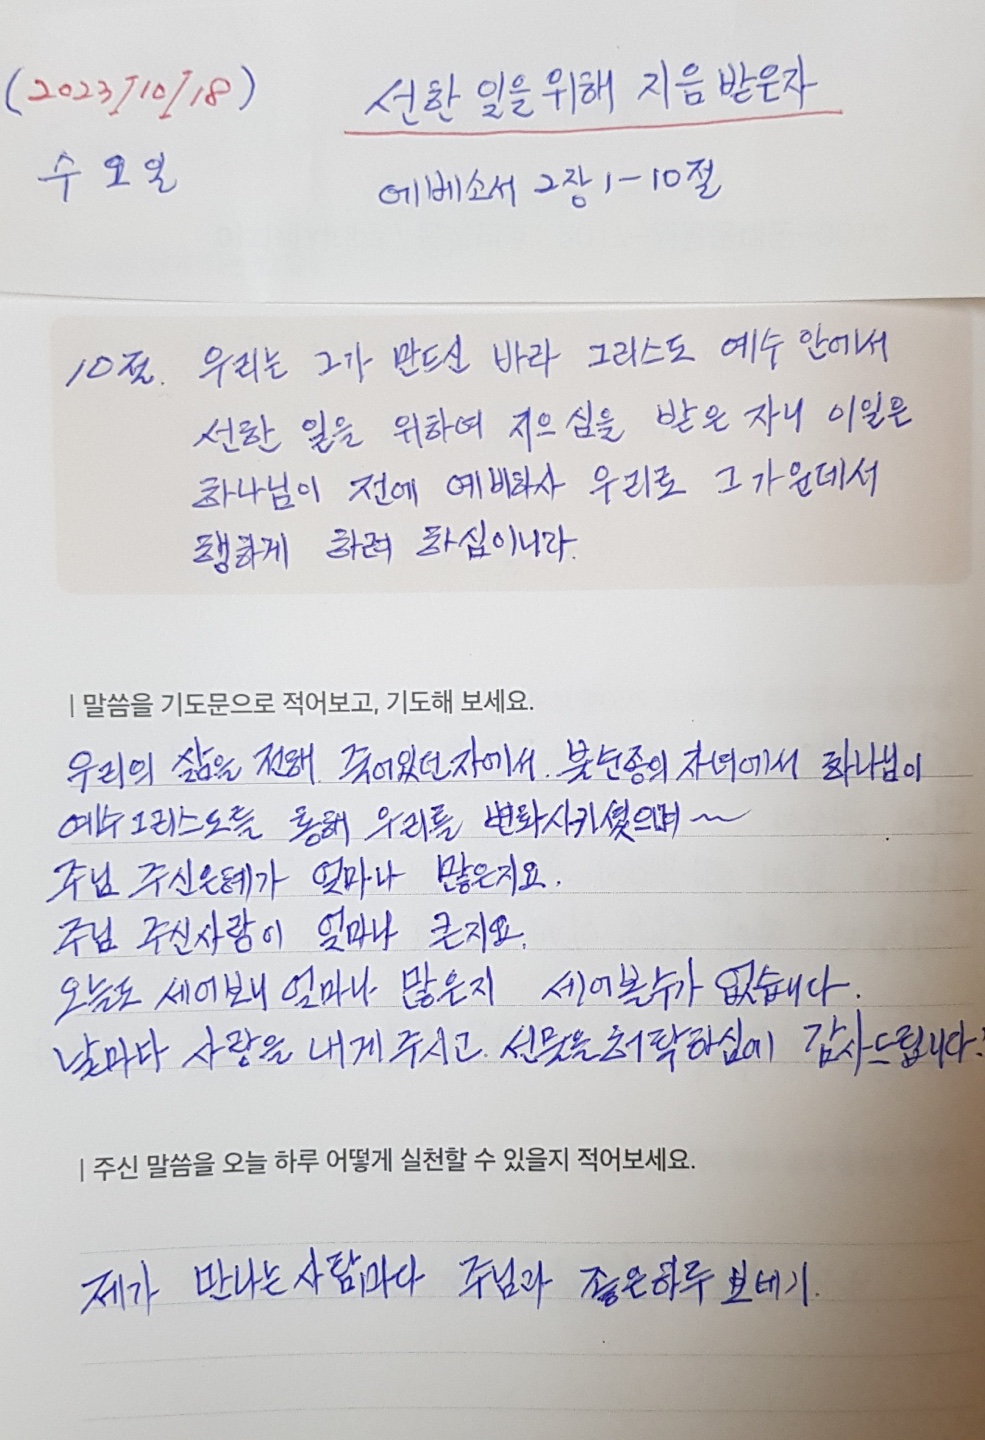 (2023/10/18) 선한 일을 위해 지음 받은자
수요일 에베소서 2장 1-10절
10절. 우리는 그가 만드신 바라 그리스도 예수 안에서
선한 일을 위하여 지으심을 받은 자니 이일은
하나님이 전에 예비하사 우리로 그 가운데서
행하게 하려 하심이니라.
| 말씀을 기도문으로 적어보고, 기도해 보세요.
우리의 삶을 전해. 죽어있던자에서. 불순종의 자녀에서 하나님이
예수그리스도를 통해 우리를 변화시키셨으며~
주님 주신은혜가 얼마나 많은지요.
주님 주신사랑이 얼마나 큰지요.
오늘도 세어보니 얼마나 많은지 세어볼수가 없습니다.
날마다 사랑을 내게주시고. 선못을허락하심에 감사드립니다.
| 주신 말씀을 오늘 하루 어떻게 실천할 수 있을지 적어보세요.
제가 만나는사람마다 주님과 좋은하루 보네기.